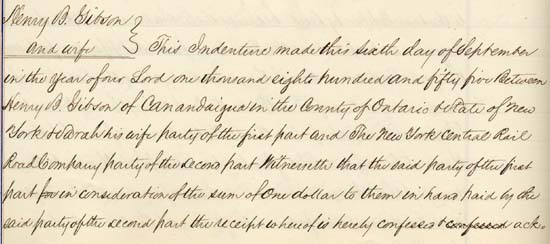 Henry B. Gibson
and wife } This Indenture made this sixth day of September
in the year of our Lord one thousand eight hundred and fifty five Between
Henry B. Gibson of Canandaigua in the County of Ontario & State of New
York & Sarah his wife party of the first part and The New York Central Rail
Road Company party of the second part Witnesseth that the said party of the first
part for in consideration of the sum of One dollar to them in hand paid by the
said party of the second part the receipt whereof is hereby confessed & confessed ack-